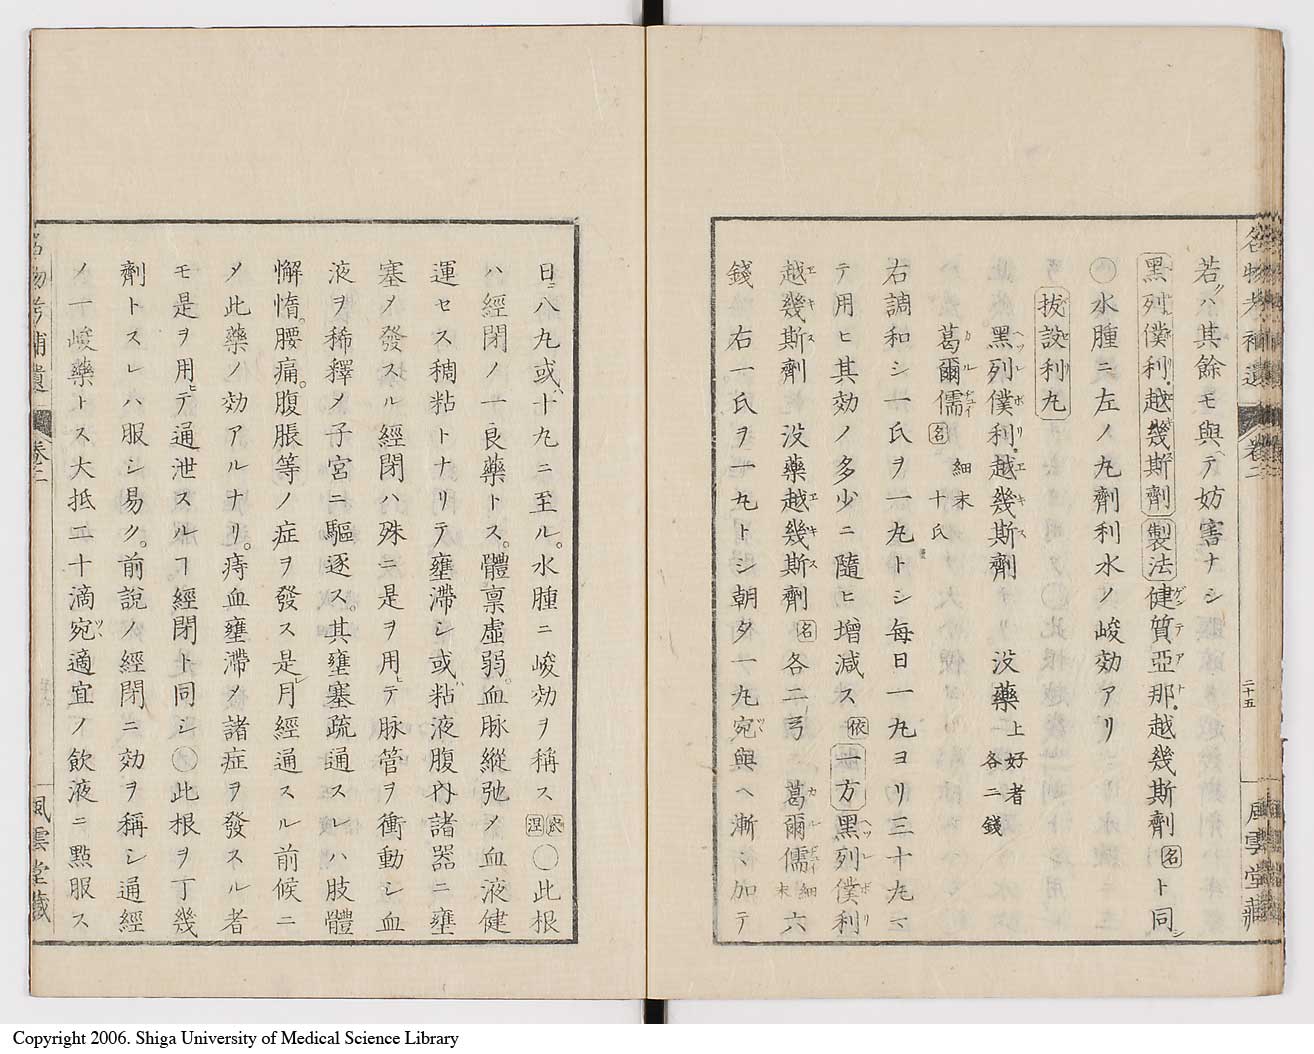 名物考補遺 卷二 二十五 風雲堂藏
若クハ其餘モ與ヘテ妨害ナシ
黑列僕利越幾斯劑 製法 健質亞那越幾斯劑名ト同シ
○水腫ニ左ノ丸劑利水ノ峻効アリ
抜設利丸
黑列僕利越幾斯劑 沒藥上好者 各二錢
葛爾儒名 細末 十氏
右調和シ一氏ヲ一丸トシ毎日一丸ヨリ三十丸マ
テ用ヒ其効ノ多少ニ隨ヒ増減ス依 一方 黑列僕利
越幾斯劑 沒藥越幾斯劑名各二弓 葛爾儒細末六
錢 右一氏ヲ一丸トシ朝夕一丸宛與ヘ漸々加テ
日ニ八丸或ハ十丸ニ至ル。水腫ニ峻効ヲ稱ス ○此根
ハ經閉ノ一良藥トス。體禀虛弱。血脉縱弛メ血液健
運セス稠粘トナリテ壅滯シ或ハ粘液腹內諸器ニ壅
塞メ發スル經閉ハ殊ニ是ヲ用ヒテ脉管ヲ衝動シ血
液ヲ稀釋メ子宮ニ驅逐ス。其壅塞疏通スレハ肢體
懈惰。腰痛。腹脹等ノ症ヲ發ス是レ月經通スル前候ニ
メ此藥ノ効アルナリ。痔血壅滯メ諸症ヲ發スル者
モ是ヲ用ヒテ通泄スルヿ經閉ト同シ○此根ヲ丁幾
劑トスレハ服シ易ク。前說ノ經閉ニ効ヲ稱シ通經
ノ一峻藥トス大抵二十滴宛適宜ノ飲液ニ點服ス
名物考補遺 卷二 風雲堂藏
Copyright 2006. Shiga University of Medical Science Library